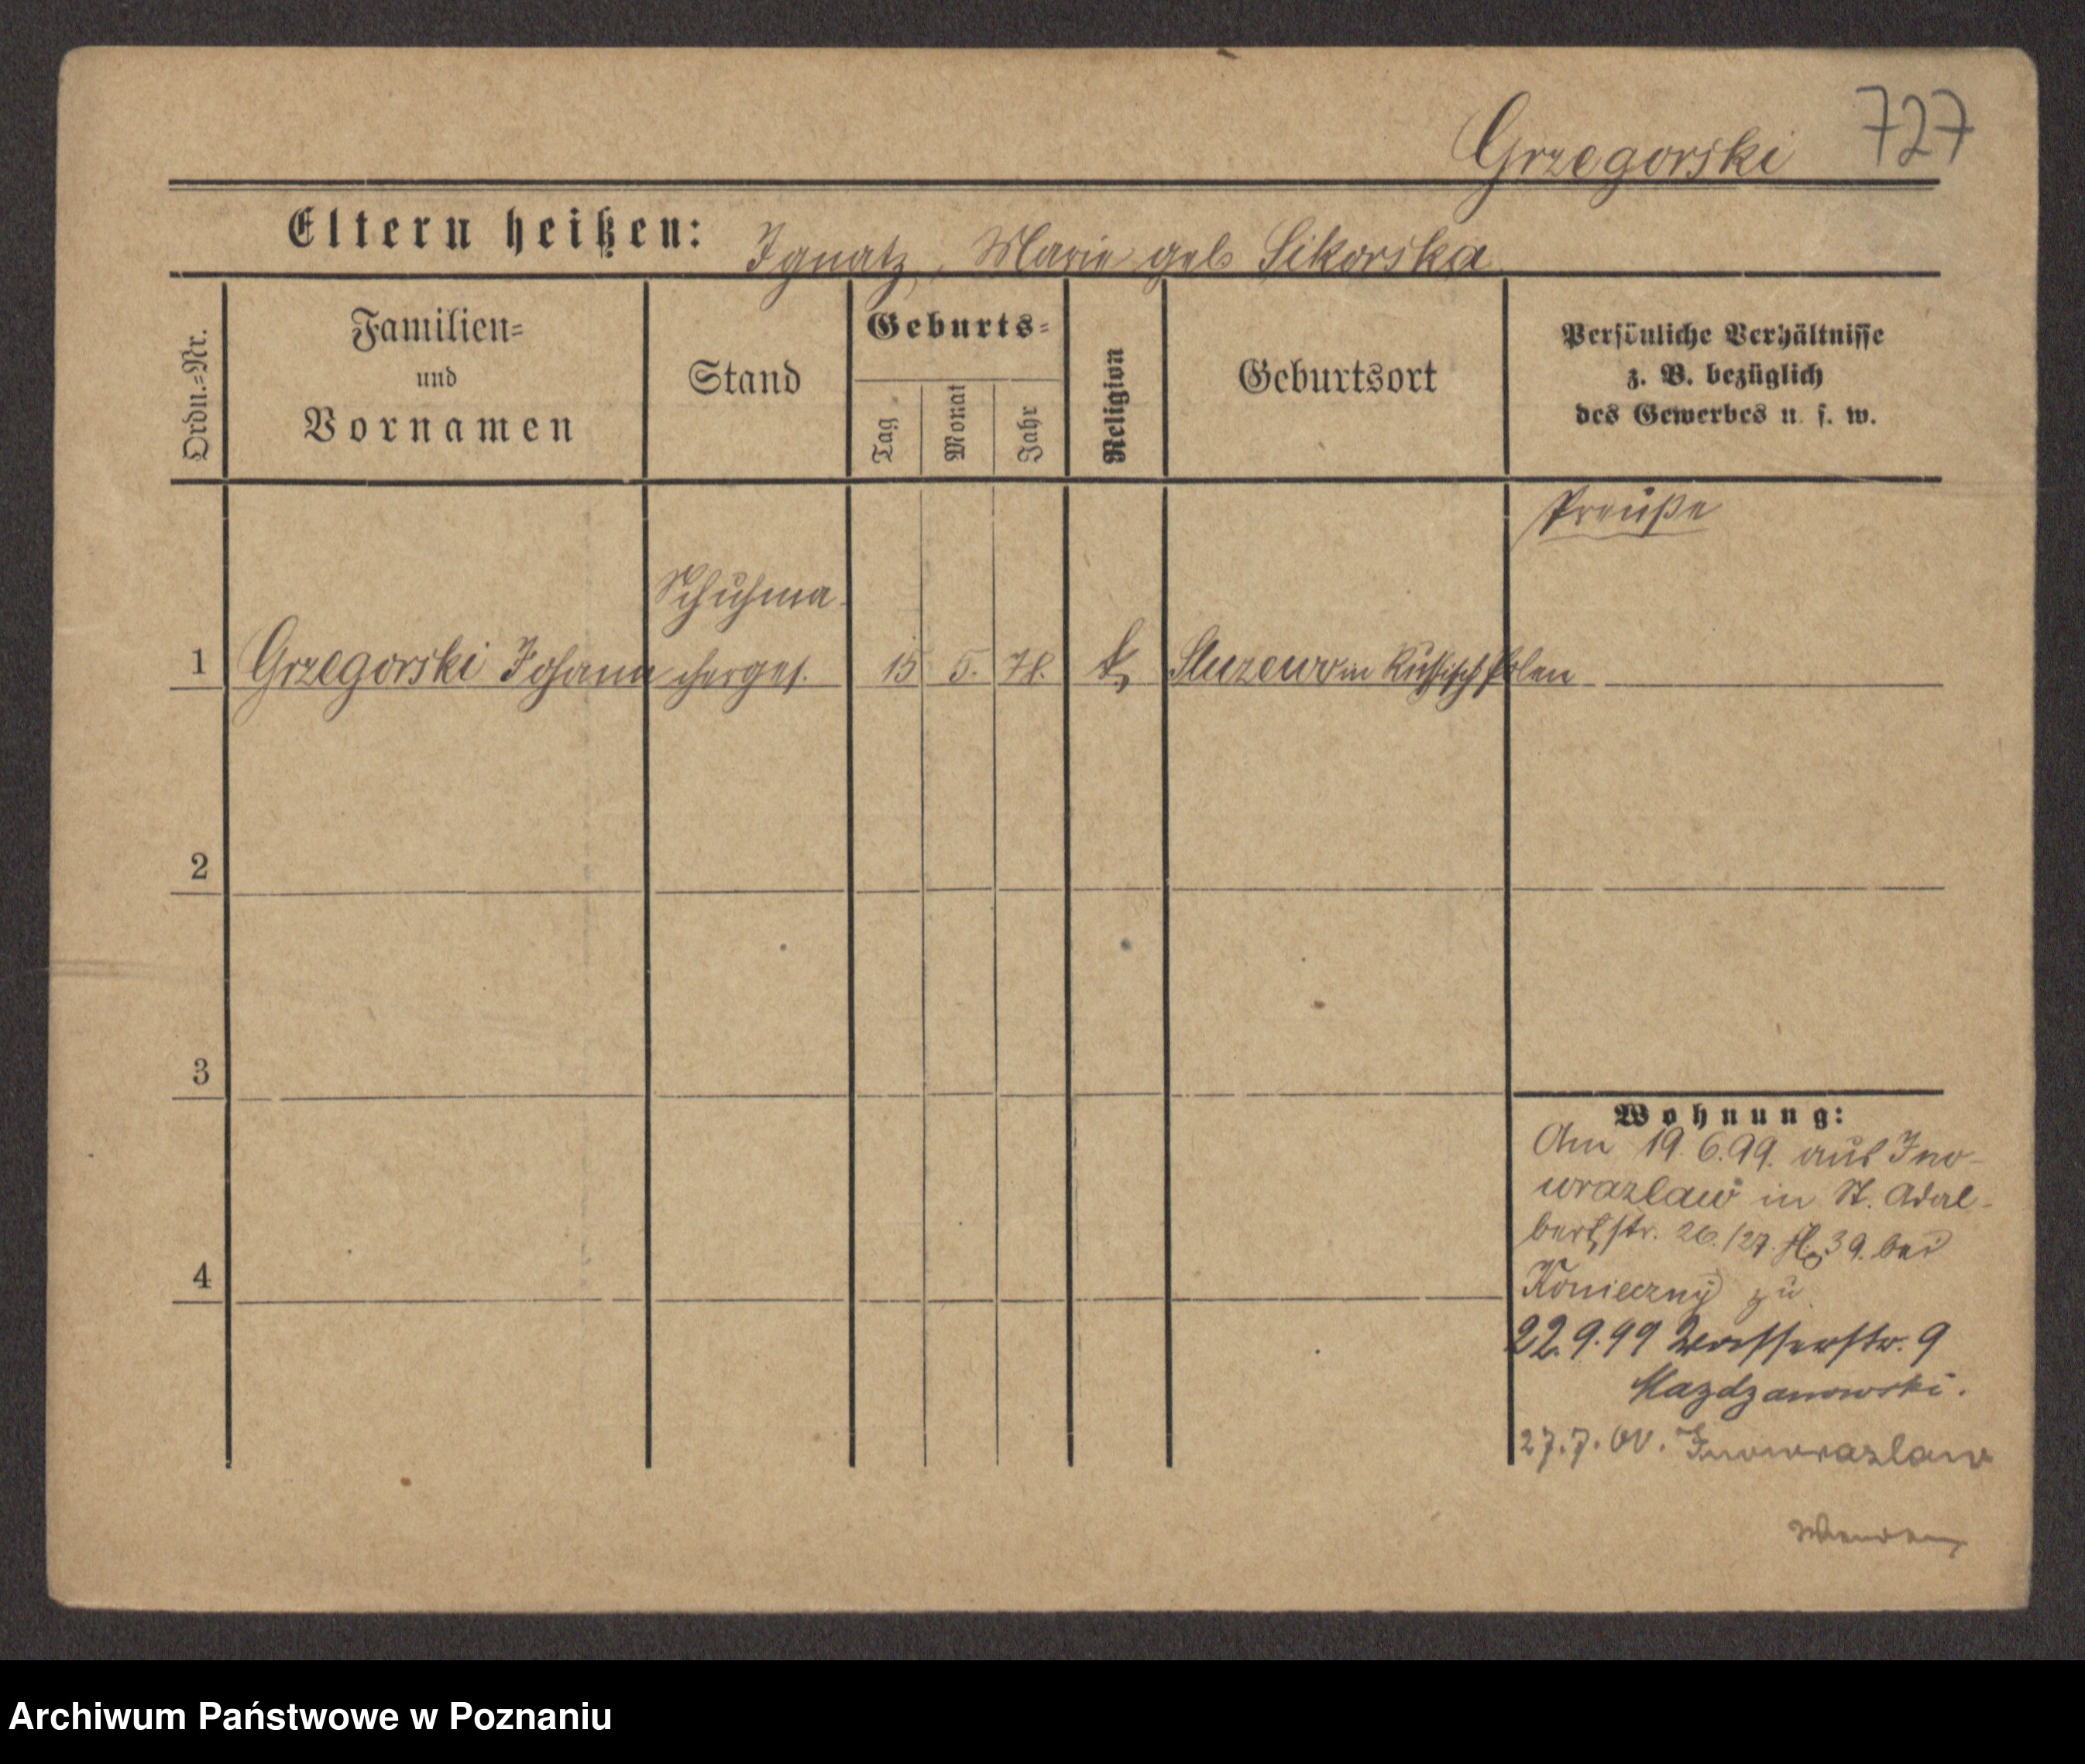 Grzegorski 727
Eltern heißen: Ignatz, Marie geb Sikorska
Ordn.=Nr.
Familien=
und
Vornamen
Stand
Geburts=
Tag
Monat
Jahr
Religion
Geburtsort
Persönliche Verhältnisse
z. B. bezüglich
des Gewerbes u. s. w.
Preuße
Schuhma-
1 Grzegorski Johann chergef. 15 5. 78. k Sluzewo in Russisch Polen
2
3
4
Wohnung:
Am 19. 6. 99. aus Ino-
wrazlaw in St. Adal-
bertstr. 26./27. 39. bei
Konieczny zu
22. 9. 99 Wasserstr. 9
Mazdzanowski.
27. 7. 00. Inowrazlaw
Archiwum Państwowe w Poznaniu